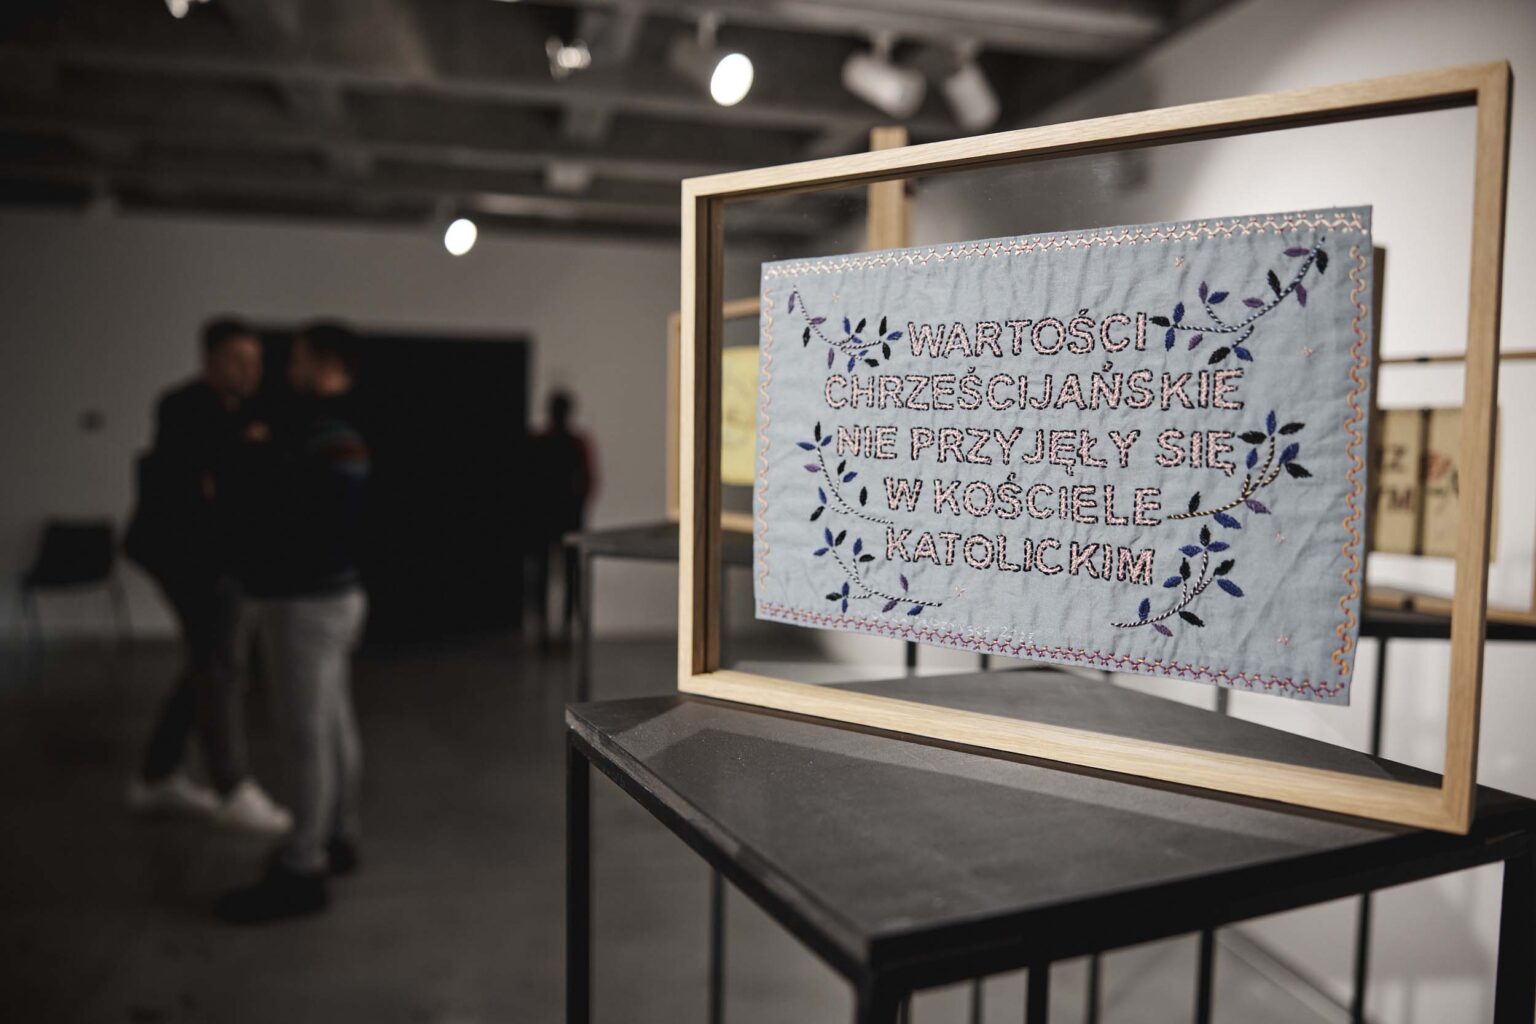 WARTOŚCI
CHRZEŚCIJAŃSKIE
NIE PRZYJĘŁY SIĘ
W KOŚCIELE
KATOLICKIM